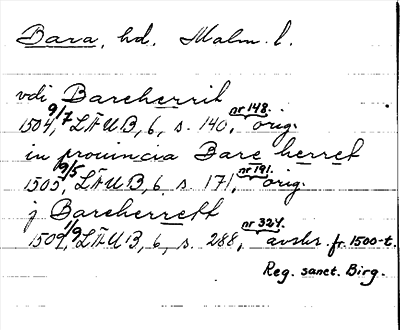 Bara, hd. Malm. l.
vdi Bareherrit
1504 9/7, LÄUB, 6, s. 140, nr 148. orig.
in prouincia Bare herret
1505 9/5, LÄUB, 6 s. 171, nr 191. orig.
j Bareherrett
1509 1/9, LÄUB, 6, s. 288, nr 324. avskr. fr. 1500-t.
Reg. sanct. Birg.